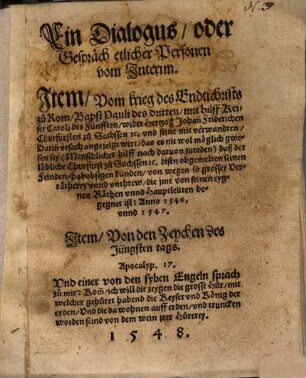 N.3
Ein Dialogus/ oder
Gespräch etlicher Personen
vom Interim.
Item/ Vom krieg des Endtichrists
zů Rom/ Bapst Pauli des dritten/ mit hilff Kei-
ser Caroli des Fünfften/ wider Hertzog Johañ Friderichen
Churfürsten zů Sachssen ꝛc. vnd seine mit verwandten/
Darin vrsach angezeigt wirt/ das es nit wol möglich gwe-
sen sey/ (Menschlicher hilff nach daruon zůreden) daß der
löbliche Churfürst zů Sachssen ꝛc. disen obgemelten seinen
Feinden/ hab obsigen künden/ von wegen so grosser Ver-
rätherey vnnd vnthrew/ die jme von seinen eyg-
nen Räthen vnnd Hauptleüten be-
gegnet ist: Anno 1546.
vnnd 1547.
Item/ Von den Zeychen des
Jüngsten tags.
Apocalyp. 17.
Vnd einer von den syben Engeln sprach
zů mir: Kom̃/ ich will dir zeygen die grosse Hůr/ mit
welcher gehůret habend die Keyser vnd Künig der
erden/ Vnd die da wohnen auff erden/ vnd truncken
worden seind von dem wein jrer Hůrerey.
1548.